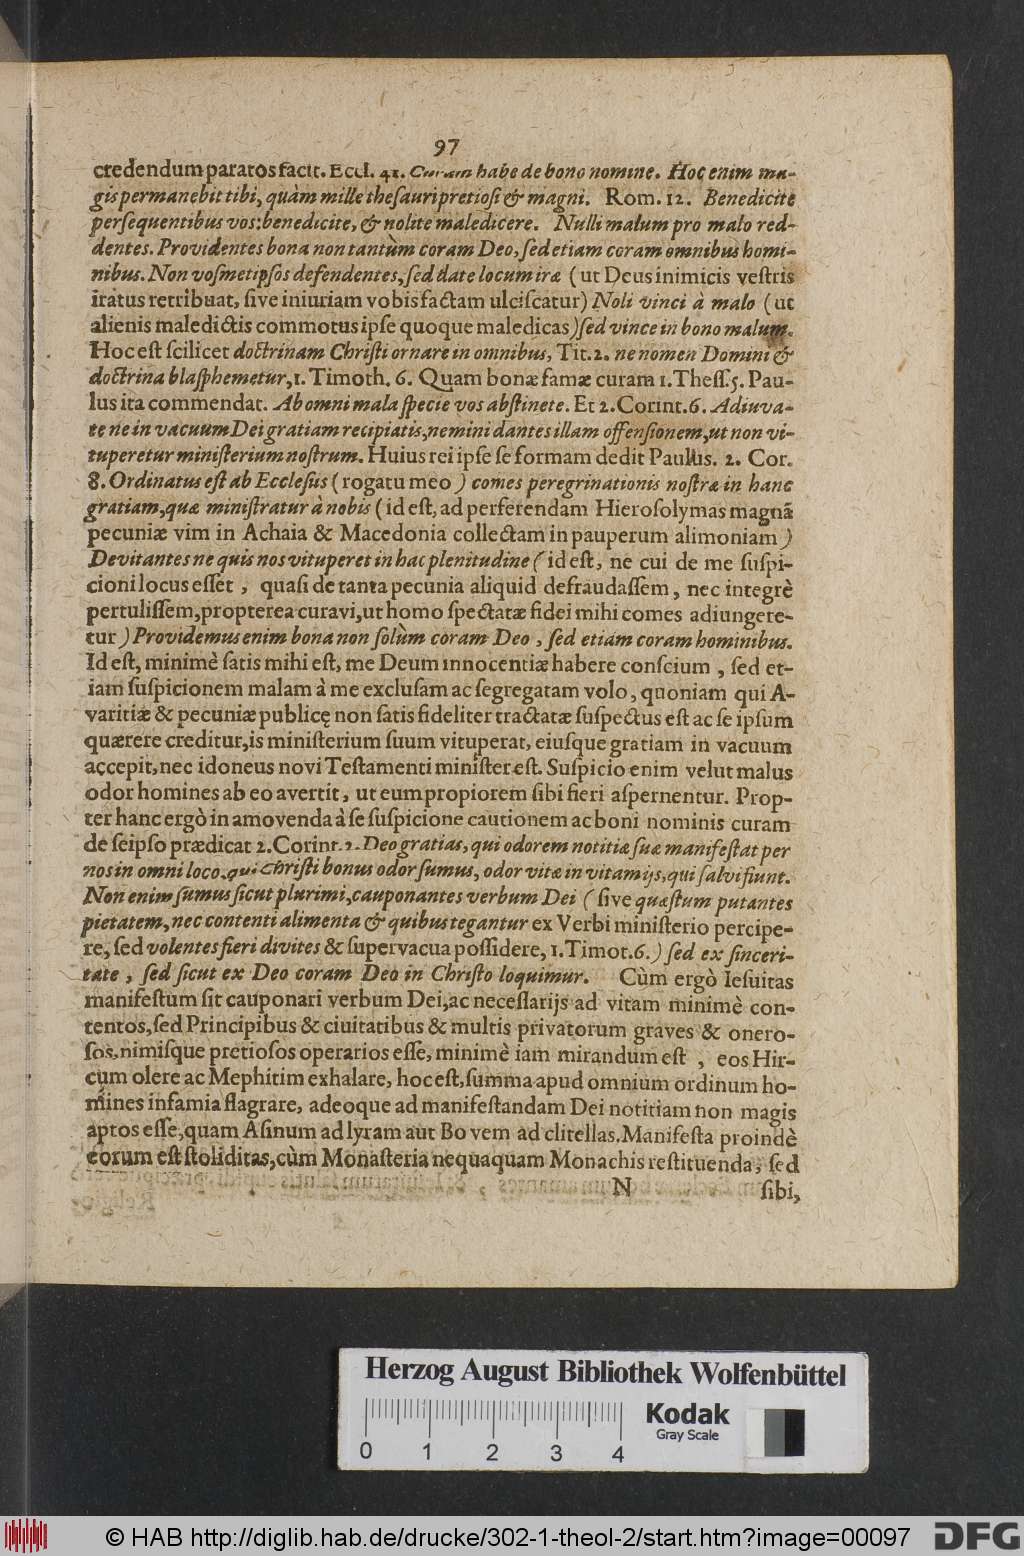 97
credendum paratos facit. Eccl. 41. Curam habe de bono nomine. Hoc enim ma-
gis permanebit tibi, quàm mille thesauri pretiosi & magni. Rom. 12. Benedicite
persequentibus vos: benedicite, & nolite maledicere. Nulli malum pro malo red-
dentes. Providentes bona non tantùm coram Deo, sed etiam coram omnibus homi-
nibus. Non vosmetipsos defendentes, sed date locum iræ (ut Deus inimicis vestris
iratus retribuat, sive iniuriam vobis factam ulciscatur) Noli vinci à malo (ut
alienis maledictis commotus ipse quoque maledicas) sed vince in bono malum.
Hoc est scilicet doctrinam Christi ornare in omnibus, Tit. 2. ne nomen Domini &
doctrina blasphemetur, 1. Timoth. 6. Quam bonæ famæ curam 1. Thess. 5. Pau-
lus ita commendat. Ab omni mala specie vos abstinete. Et 2. Corint. 6. Adiuva-
te ne in vacuum Dei gratiam recipiatis, nemini dantes illam offensionem, ut non vi-
tuperetur ministerium nostrum. Huius rei ipse se formam dedit Paulus. 2. Cor.
8. Ordinatus est ab Ecclesiis (rogatu meo) comes peregrinationis nostræ in hanc
gratiam, quæ ministratur à nobis (id est, ad perferendam Hierosolymas magnã
pecuniæ vim in Achaia & Macedonia collectam in pauperum alimoniam)
Devitantes ne quis nos vituperet in hac plenitudine (id est, ne cui de me suspi-
cioni locus esset, quasi de tanta pecunia aliquid defraudassem, nec integrè
pertulissem, propterea curavi, ut homo spectatæ fidei mihi comes adiungere-
tur) Providemus enim bona non solùm coram Deo, sed etiam coram hominibus.
Id est, minimè satis mihi est, me Deum innocentiæ habere conscium, sed et-
iam suspicionem malam à me exclusam ac segregatam volo, quoniam qui A-
varitiæ & pecuniæ publicę non satis fideliter tractatæ suspectus est ac se ipsum
quærere creditur, is ministerium suum vituperat, eiusque gratiam in vacuum
accepit, nec idoneus novi Testamenti minister est. Suspicio enim velut malus
odor homines ab eo avertit, ut eum propiorem sibi fieri aspernentur. Prop-
ter hanc ergò in amovenda à se suspicione cautionem ac boni nominis curam
de seipso prædicat 2. Corint. 2. Deo gratias, qui odorem notitiæ suæ manifestat per
nos in omni loco, qui Christi bonus odor sumus, odor vitæ in vitam ijs, qui salvi fiunt.
Non enim sumus sicut plurimi, cauponantes verbum Dei (sive quæstum putantes
pietatem, nec contenti alimenta & quibus tegantur ex Verbi ministerio percipe-
re, sed volentes fieri divites & supervacua possidere, 1. Timot. 6.) sed ex sinceri-
tate, sed sicut ex Deo coram Deo in Christo loquimur. Cùm ergò Iesuitas
manifestum sit cauponari verbum Dei, ac necessarijs ad vitam minimè con-
tentos, sed Principibus & ciuitatibus & multis privatorum graves & onero-
sos, nimisque pretiosos operarios esse, minimè iam mirandum est, eos Hir-
cum olere ac Mephitim exhalare, hoc est, summa apud omnium ordinum ho-
mines infamia flagrare, adeoque ad manifestandam Dei notitiam non magis
aptos esse, quam Asinum ad lyram aut Bovem ad clitellas. Manifesta proindè
eorum est stoliditas, cùm Monasteria nequaquam Monachis restituenda, sed
N sibi,
Herzog August Bibliothek Wolfenbüttel
Kodak
Gray Scale
0 1 2 3 4
© HAB http://diglib.hab.de/drucke/302-1-theol-2/start.htm?image=00097
DFG